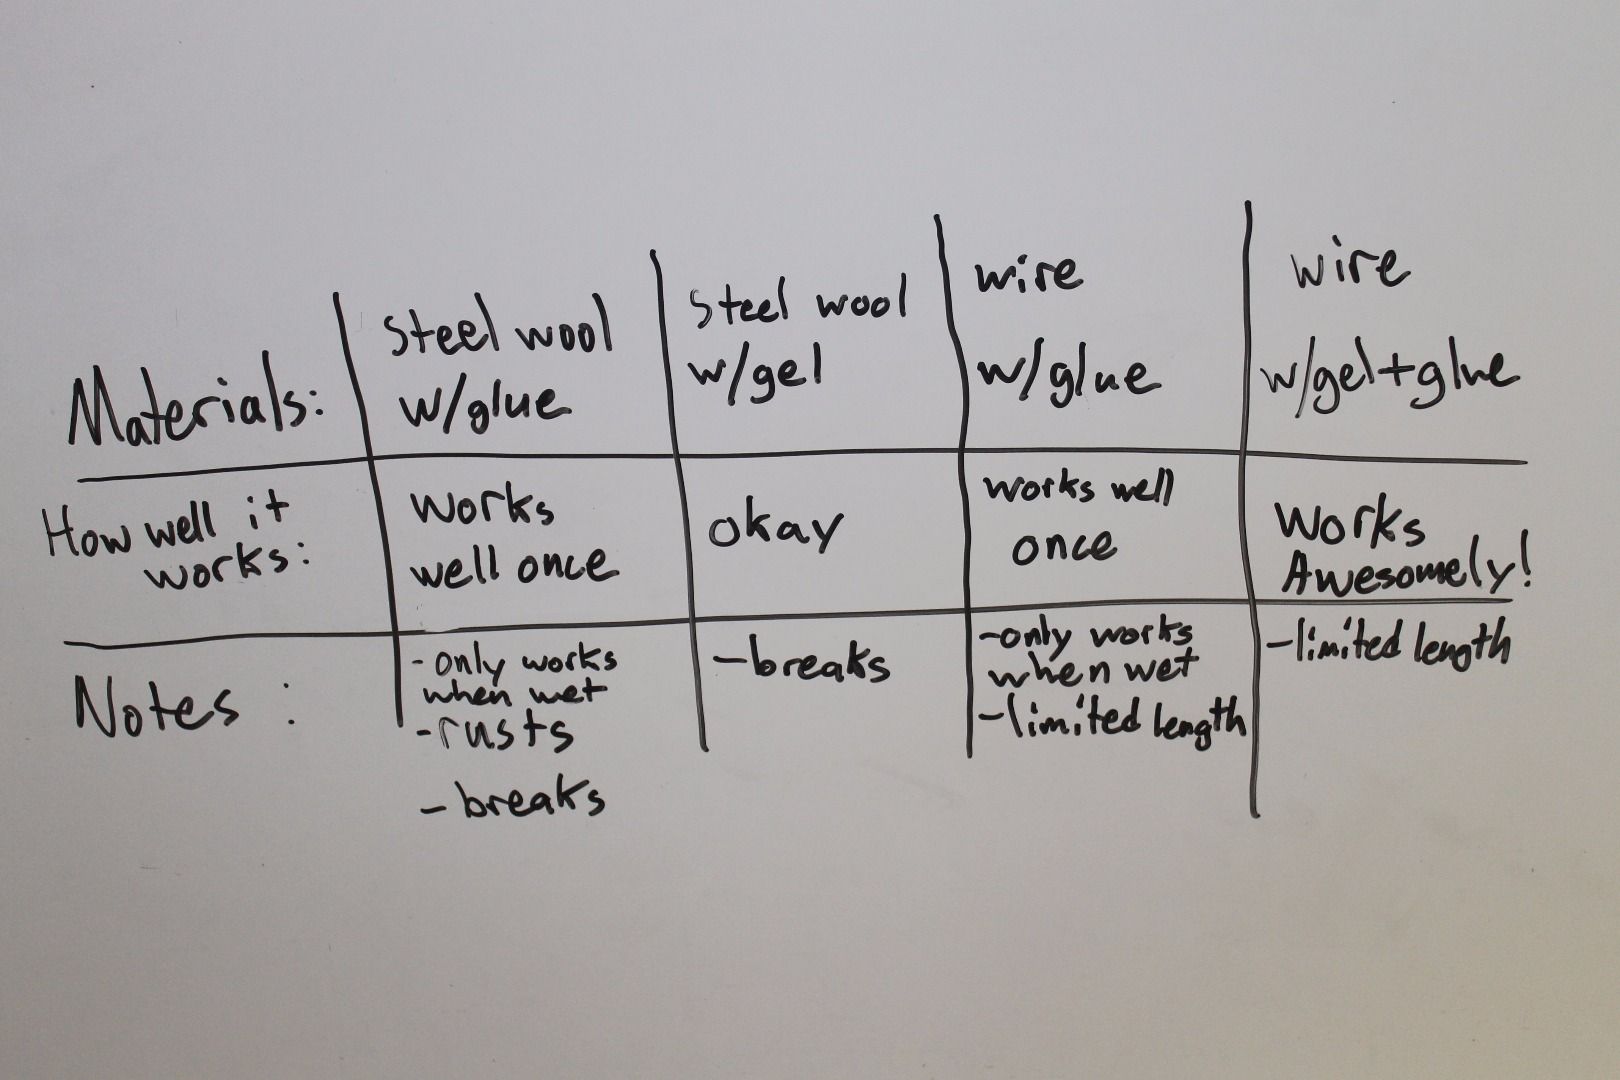 Materials:
steel wool
w/glue
steel wool
w/gel
wire
w/glue
wire
w/gel+glue
How well it
works:
works
well once
okay
works well
once
Works
Awesomely!
Notes :
- only works
when wet
- rusts
- breaks
- breaks
- only works
when wet
- limited length
- limited length